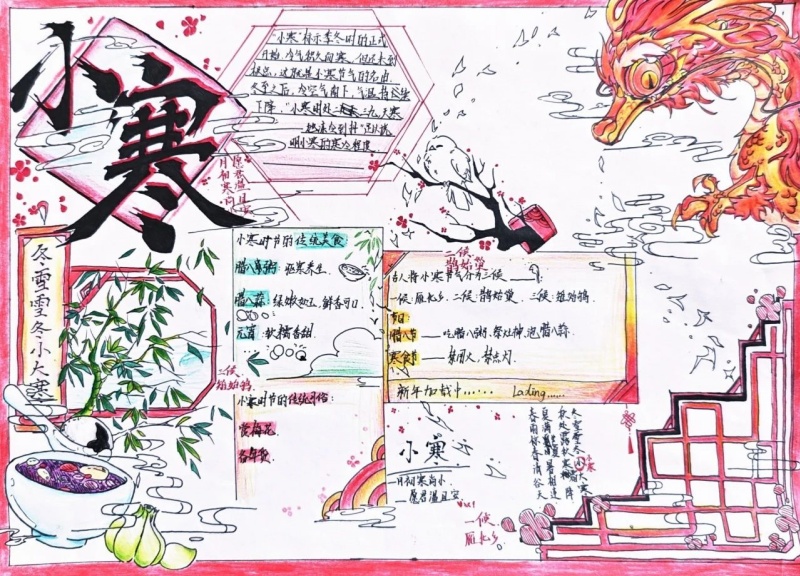 小寒
"小寒"标示季冬时节的正式
开始,冷气积久而寒,但还未到
极点,这就是小寒节气的名由
冬至之后,冷空气南下,气温持续
下降,"小寒时处二三九,天寒
地冻冷到抖"
明小寒的寒冷程度
月初寒尚小
愿君温且安
冬雪雪冬小大寒
小寒时节的传统美食
腊八粥 驱寒养生
腊八蒜: 绿嫩如玉,鲜香可口
元宵: 软糯香甜
二候、
鹊始巢
古人将小寒节气分为三候
一候:雁北乡,二候:鹊始巢 三候:雉始鸲
节日
腊八节——吃腊八粥,祭灶神,泡腊八蒜
寒食节——禁烟火,禁点灯
新年加载中...... Loading......
三候、
雉始鸲
小寒时节的传统习俗:
赏梅花
备年货
小寒
月初寒尚小
愿君温且安
一候、
雁北乡
春雨惊春清谷天
夏满芒夏暑相连
秋处露秋寒霜降
冬雪雪冬小大寒